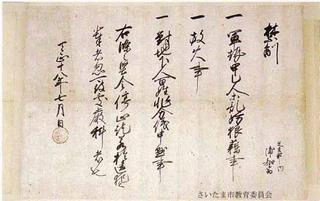 禁制
一 軍勢甲乙人等乱妨狼藉事
一 放火事
一 対地下人百姓非分儀申懸事
右條々堅令停止訖若於違犯
輩者忽可被處嚴科者也
天正十八年七月日
さいたま市教育委員会